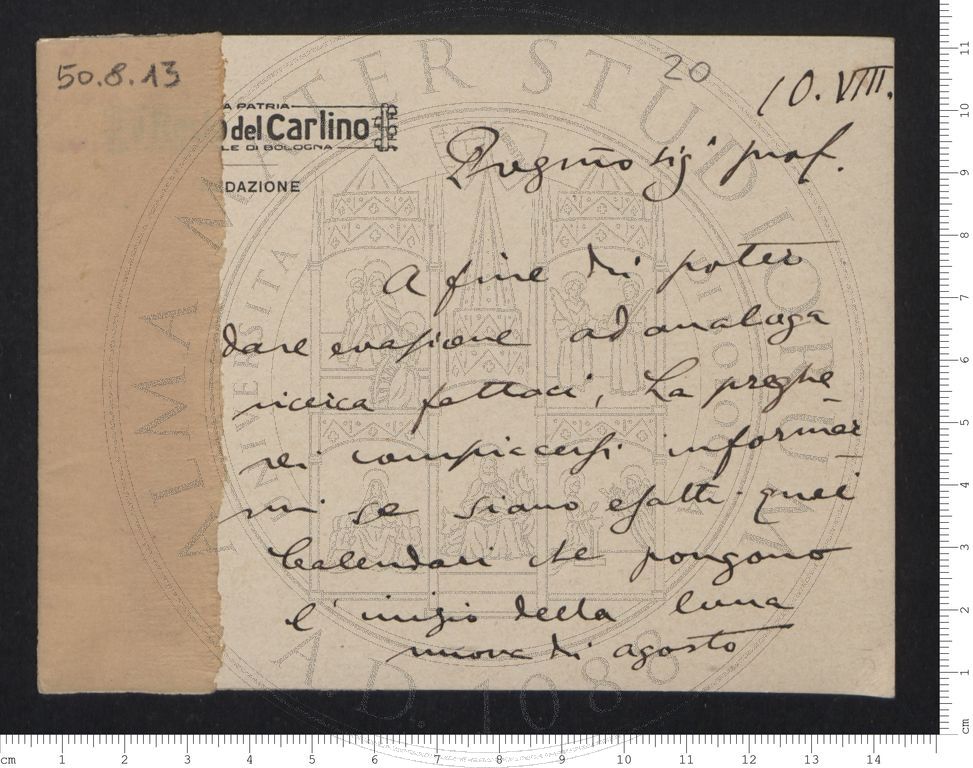 50.8.13
20
10. VIII.
A PATRIA
del Carlino
LE DI BOLOGNA
DAZIONE
Pregmo sigr prof.
A fine di poter
dare evasione ad analoga
ricerca fattaci, La preghe
rei compiacersi informar
mi se siano esatti quei
Calendari che pongono
l'inizio della luna
nuova di agosto
ALMA MATER STUDIORUM
UNIVERSITA
A.D. 1088